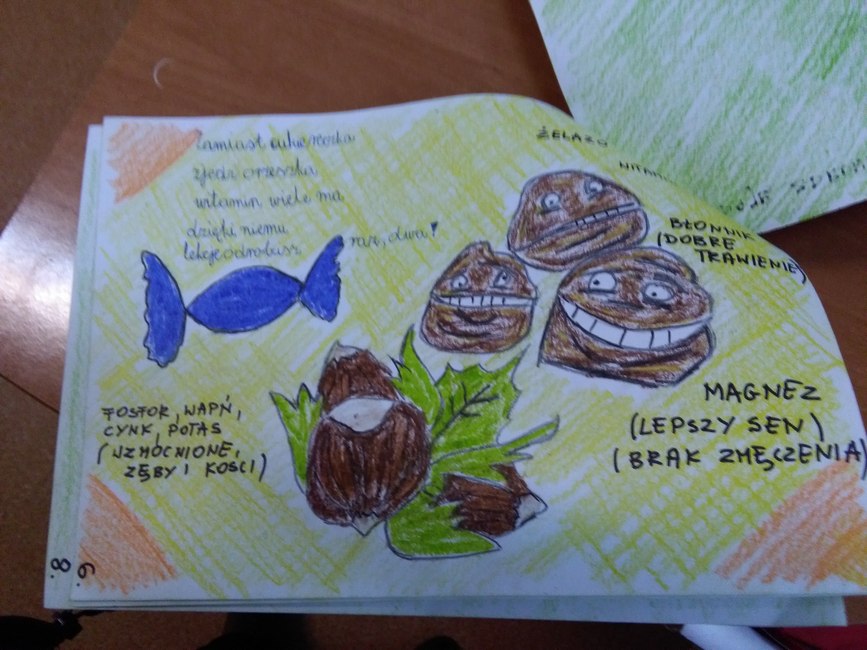 zamiast cukiereczka
zjedz orzeszka
witamin wiele ma
dzięki niemu
lekcje odrobisz raz, dwa!
ŻELAZO
BŁONNIK
(DOBRE
TRAWIENIE)
MAGNEZ
(LEPSZY SEN)
(BRAK ZMĘCZENIA)
FOSFOR, WAPŃ,
CYNK, POTAS
(WZMOCNIONE,
ZĘBY I KOŚCI)
8.
6.